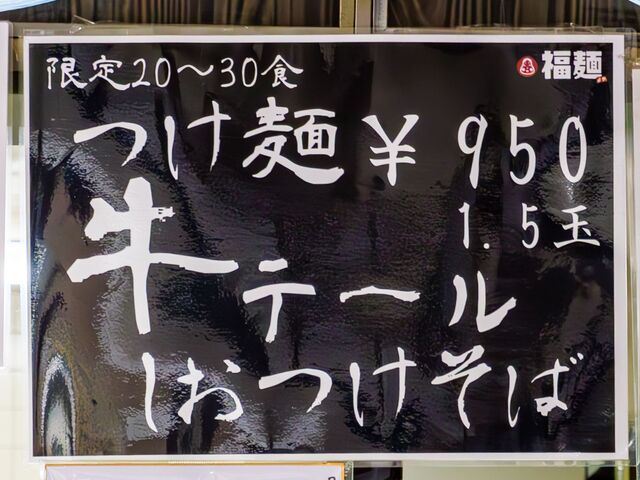 限定20～30食
福麺
つけ麺￥950
1.5玉
牛テール
しおつけそば